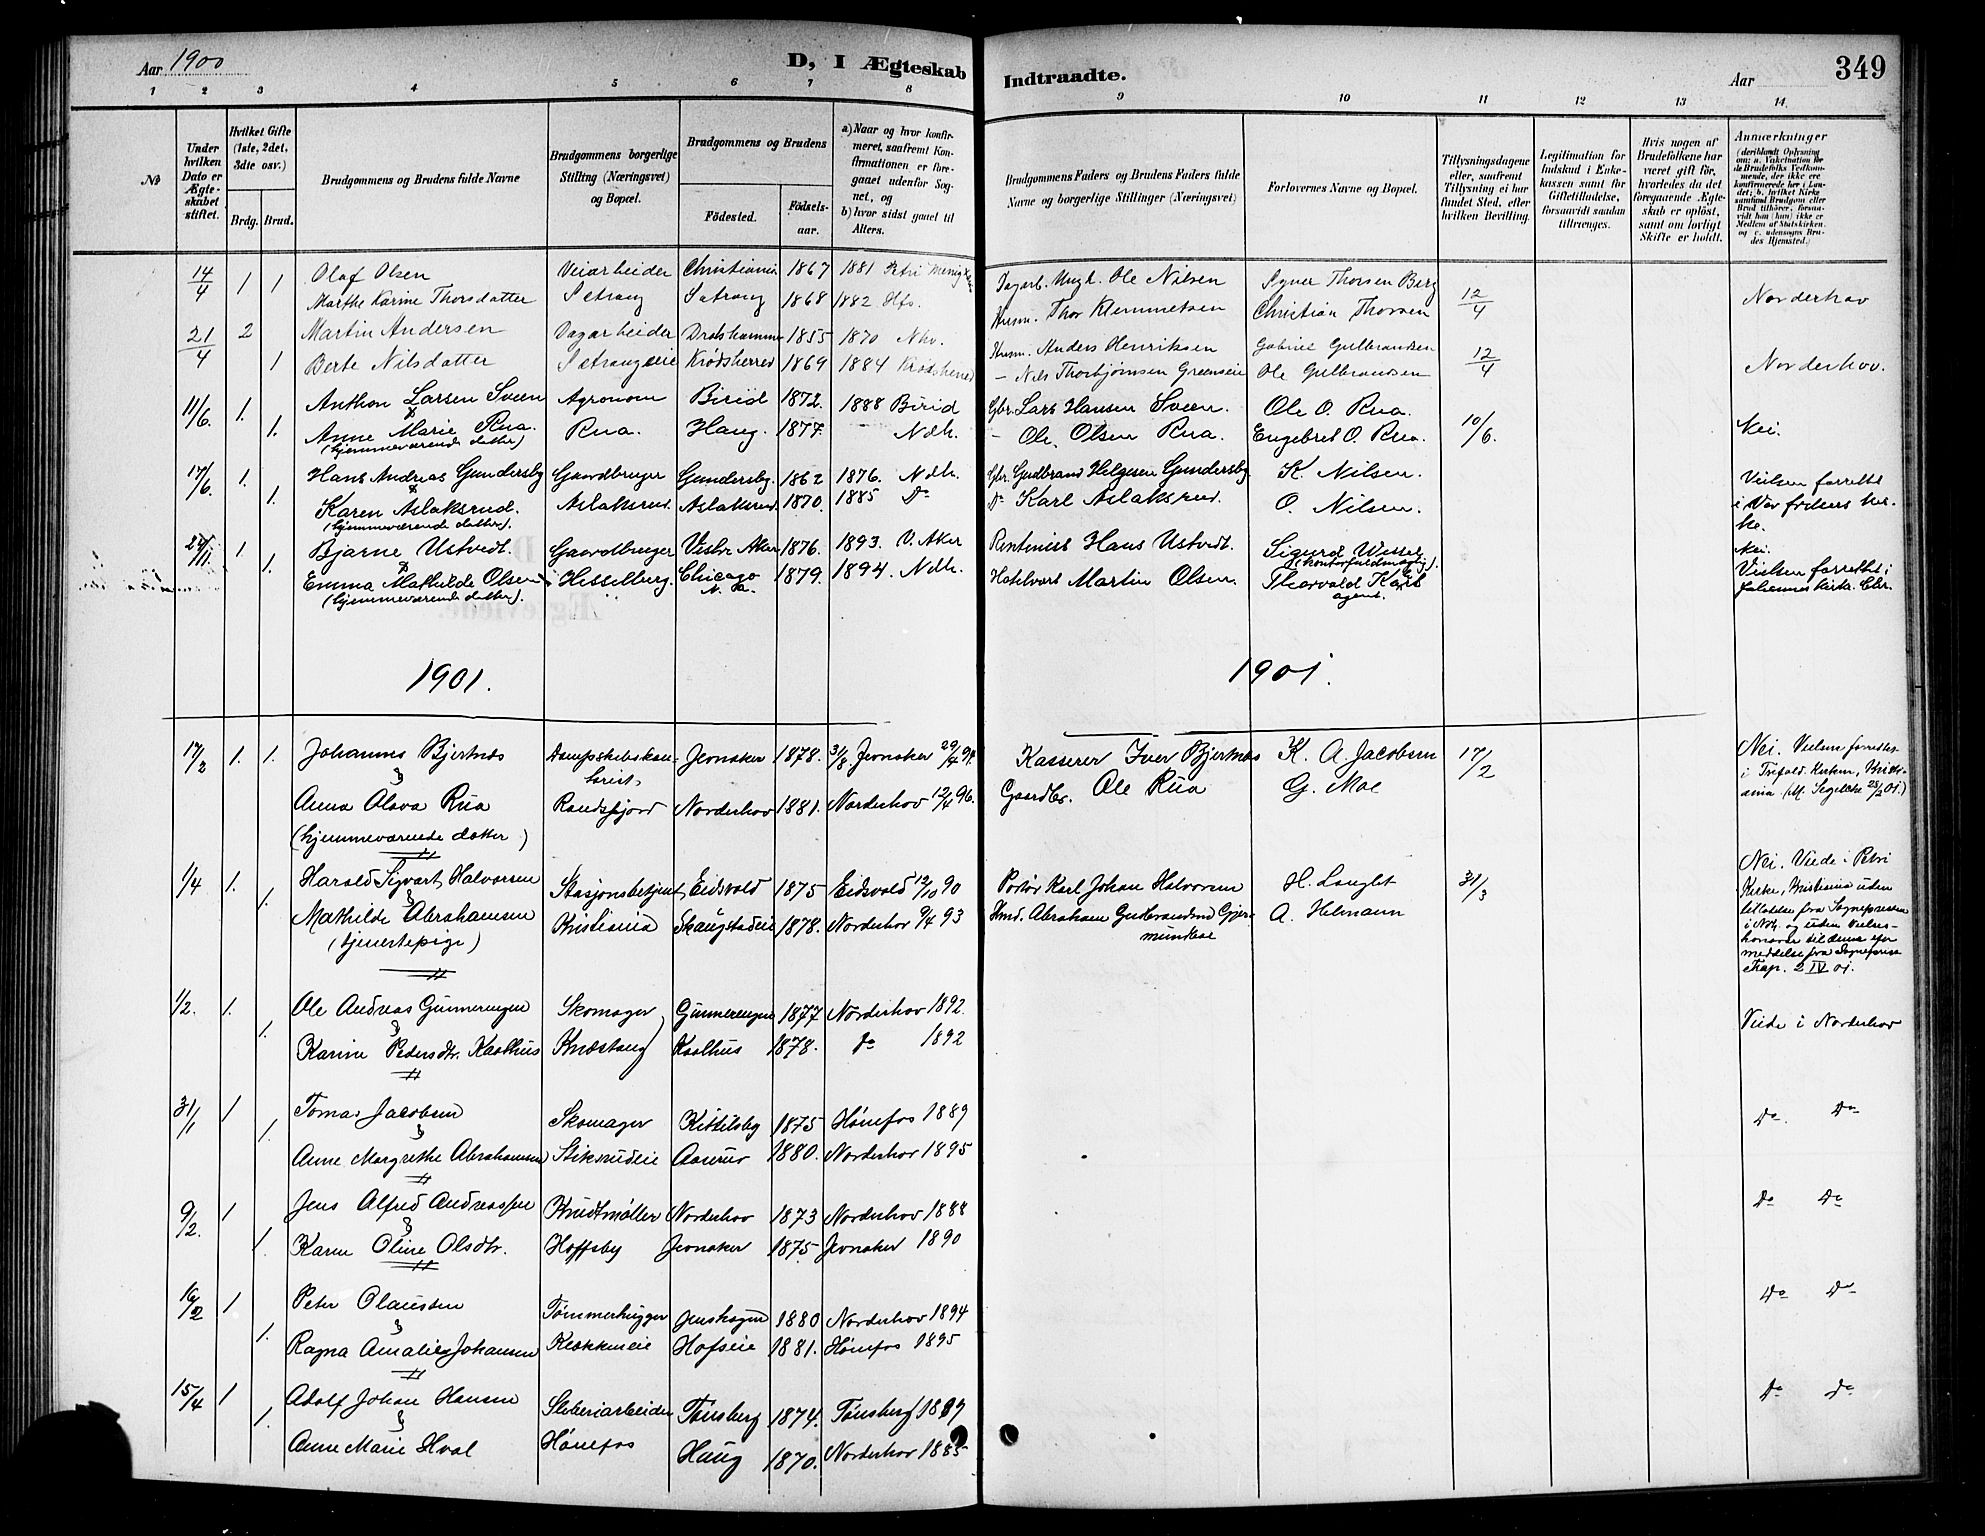 Aar 1900
D, I Ægteskab
Indtraadte.
Aar
349
1 2 3 4 5 6 7 8 9 10 11 12 13 14.
No
Under hvilken Dato er Ægteskabet stiftet.
Hvilket Gifte (1ste, 2det, 3dte osv.)
Brdg. Brud.
Brudgommens og Brudens fulde Navne
Brudgommens borgerlige Stilling (Næringsvei) og Bopæl.
Brudgommens og Brudens
Fødested.
Fødselsaar.
a) Naar og hvor konfirmeret, saafremt Konfirmationen er foregaaet udenfor Sognet, og
b) hvor sidst gaaet til Alters.
Brudgommens Faders og Brudens Faders fulde Navne og borgerlige Stillinger (Næringsvei)
Forlovernes Navne og Bopæl.
Tillysningsdagene eller, saafremt Tillysning ei har fundet Sted, efter hvilken Bevilling.
Legitimation for Indskud i Enkekassen samt for Giftetilladelse, forsaavidt saadan tiltrænges.
Hvis nogen af Brudefolkene har været gift før, hvorledes da det foregaaende Ægteskab er opløst, samt om lovligt Skifte er holdt.
Anmærkninger
14/4 1 1 Olaf Olsen Veiarbeider Christiania 1867 1881 Petri Menig Ole Nilsen Thorsen Berg
Marthe Karine Thorsdatter Setrang Setrang 1868 1882 Hfs. Husm. Thor Klemmetsen Christian Thorsen 12/4 Norderhov
21/4 2 Martin Andersen Dagarbeider 1855 1870 Nhv. Husm. Anders Henriksen Gabriel Gulbrandsen
1 Berte Nilsdatter Setrangseie Krødsherred 1869 1884 Krødsherred - Nils Thorbjørnsen Grønseie Ole Gulbrandsen 12/4 Norderhov.
11/6. 1. Anthon Larsen Sveen Agronom Birid 1872. 1888 Birid Gbr. Lars Hansen Sveen. Ole O. Rua.
1. Anne Marie Rua. Rua. Haug. 1877. Ndh. - Ole Olsen Rua. Engebret O. Rua. 10/6. Nei.
(hjemmeværende datter)
17/6. 1. Hans Andreas Gundersby Gaardbruger Gundersby. 1862 1876. Ndh. Gbr. Gudbrand Helgesen Gundersby K. Nilsen. Vielsen forrettet
1. Karen Aslaksrud. Aslaksrud. Aslaksrud. 1870. 1885 Do Do Karl Aslaksrud. O. Nilsen. i Vor frelsers kirke.
(hjemmeværende datter).
24/11. 1 Bjarne Ustvedt. Gaardbruger Vestre Aker 1876. 1893. V. Aker Rentenist Hans Ustvedt. Sigurd Wessel Nei.
(kontorfuldmægtig).
1. Emma Mathilde Olsen Hesselberg. Chicago 1879. 1894. Ndh. Hotelvært Martin Olsen. Thorvald Vielsen forrettet i
(hjemmeværende datter). N. A. agent. Johannes kirke. Chr.
1901. 1901.
17/2 1. 1. Johannes Bjertnæs Dampskibskan- Jevnaker 1878. 3/8. Jevnaker 29/4 94. Kasserer Iver Bjertnæs K. A. Jacobsen 17/2 Nei. Vielsen forrettet
i Trefold. Kirken, Kristi-
Anna Olava Rua Randsfjord Norderhov 1881. Norderhov 12/4 96. Gaardbr. Ole Rua G. Moe ania
(hjemmeværende datter)
1/4 1. Harald Sigvart Halvorsen Stasjonsbetjent, Eidsvold 1875 Eidsvold 12/10 90 Portør Karl Johan Halvorsen H. Langlet 31/3 Nei. Viede i Petri
1. Mathilde Abrahamsen Kristiania Skaugstadeie 1878. Norderhov 9/4 93 Hmd. Abraham Gudbrandsen Gjer- A. Helmann Kirke, Kristiania uden
(tjenestepige) mundboe tilladelse fra Sognepresten
i Ndh. og uden Vielses-
honorar til denne efter
meddelse fra Sogneprest
Trap. 2 IV 01.
1/2. 1. Ole Andreas Gunnerengen Skomager Gunnerengen 1877 Norderhov 1892.
1. Karine Pedersdtr. Kaalhus Knæstang Kaalhus 1878. do 1892 Viede i Norderhov
31/1 1 Tomas Jacobsen Skomager Kittilsby 1875 Hønefos 1889 Do. Do
1. Anne Margrethe Abrahamsen Stiksrudeie Aaserud 1880. Norderhov 1895
9/2. 1 Jens Alfred Andreassen Kundtmøller Norderhov 1873 Norderhov 1888 Do Do
1. Karen Oline Olsdtr. Hoffsby Jevnaker 1875 Jevnaker 1890
16/2 1 Peter Olaussen Tømmerhugger Jenshagen 1880 Norderhov 1894 Do Do
1. Ragna Amalie Johansen Klokkereie Hofseie 1881. Hønefos 1895
15/4 1 Adolf Johan Hansen Sliberiarbeider Tønsberg 1874. Tønsberg 1889 Do Do
1. Anne Marie Hval Hønefos Haug 1870. Norderhov 1885